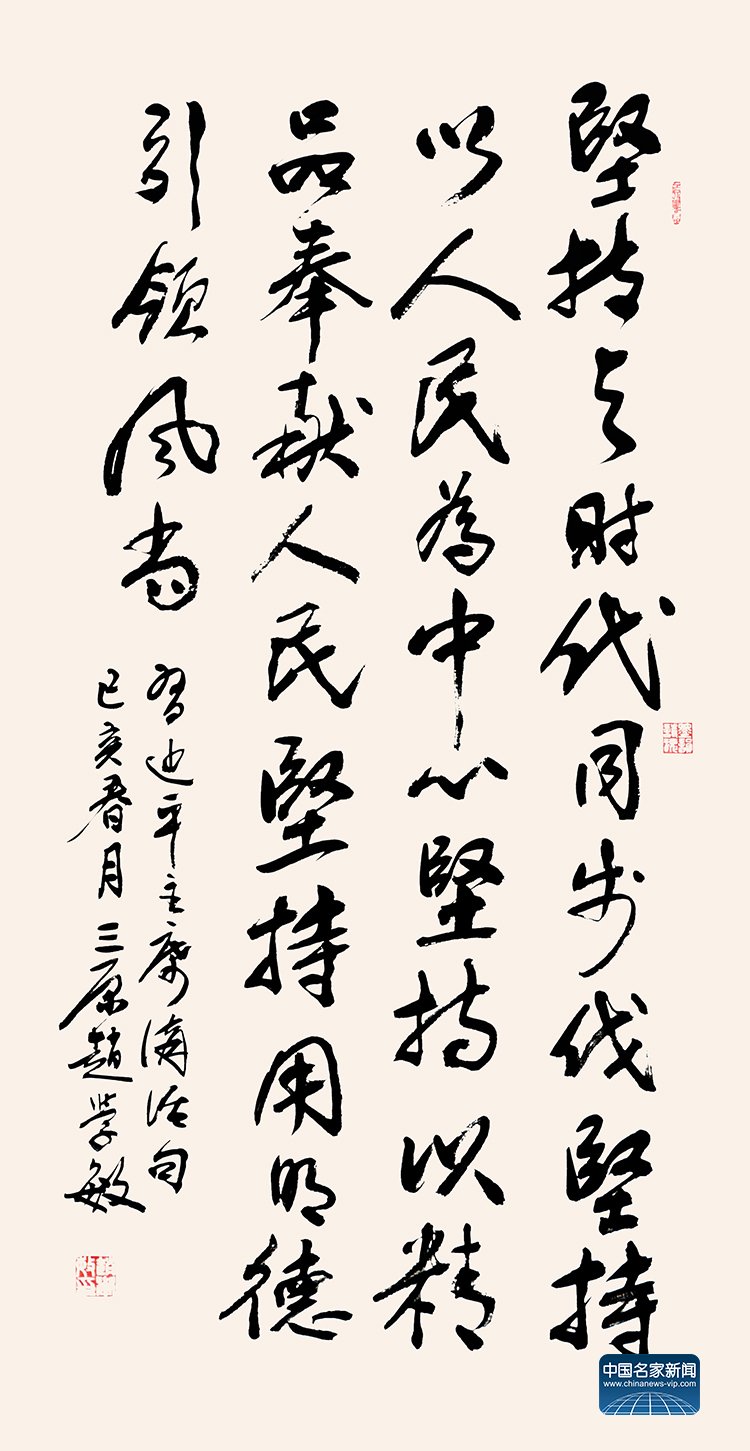 堅持与时代同步伐堅持
以人民為中心堅持以精
品奉献人民堅持用明德
引领风尚
習近平主席講话句
己亥春月三原趙学敏
中国名家新闻
www.chinanews-vip.com